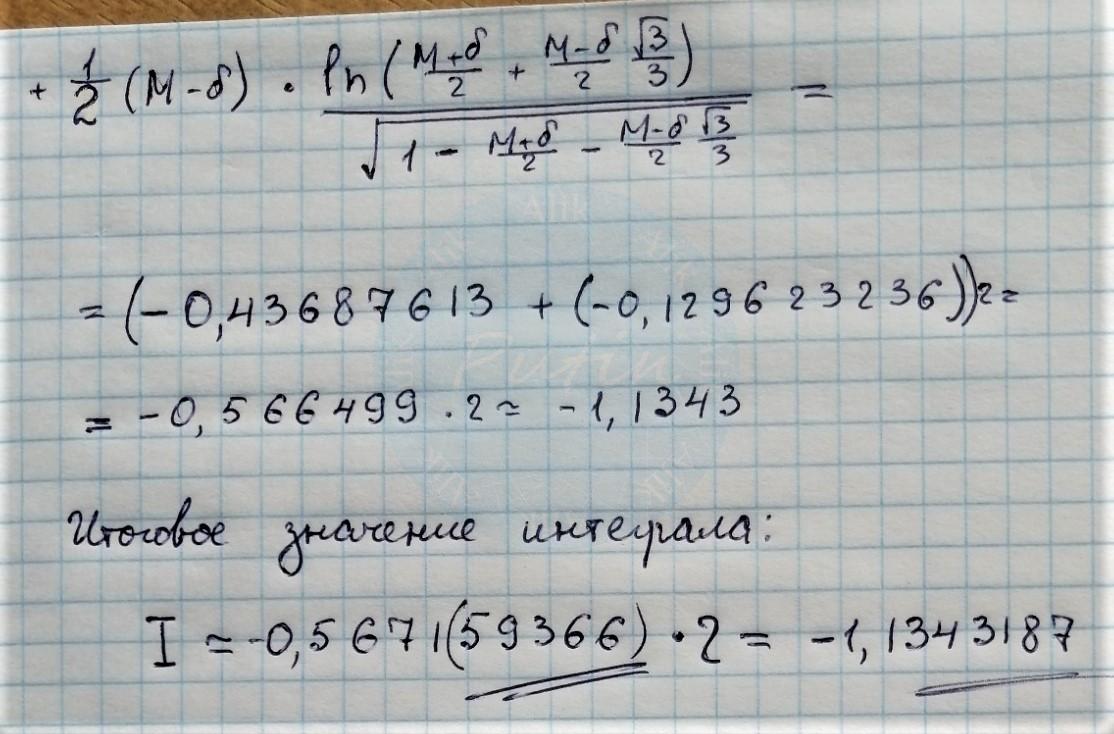 + 1/2 (M-δ) · ln(M+δ/2 + M-δ/2 √3/3) / √(1 - M+δ/2 - M-δ/2 √3/3) =
= (-0,43687613 + (-0,129623236))2 =
= -0,566499 · 2 ≈ -1,1343
Итоговое значение интеграла:
I ≈ -0,5671(59366) · 2 = -1,1343187